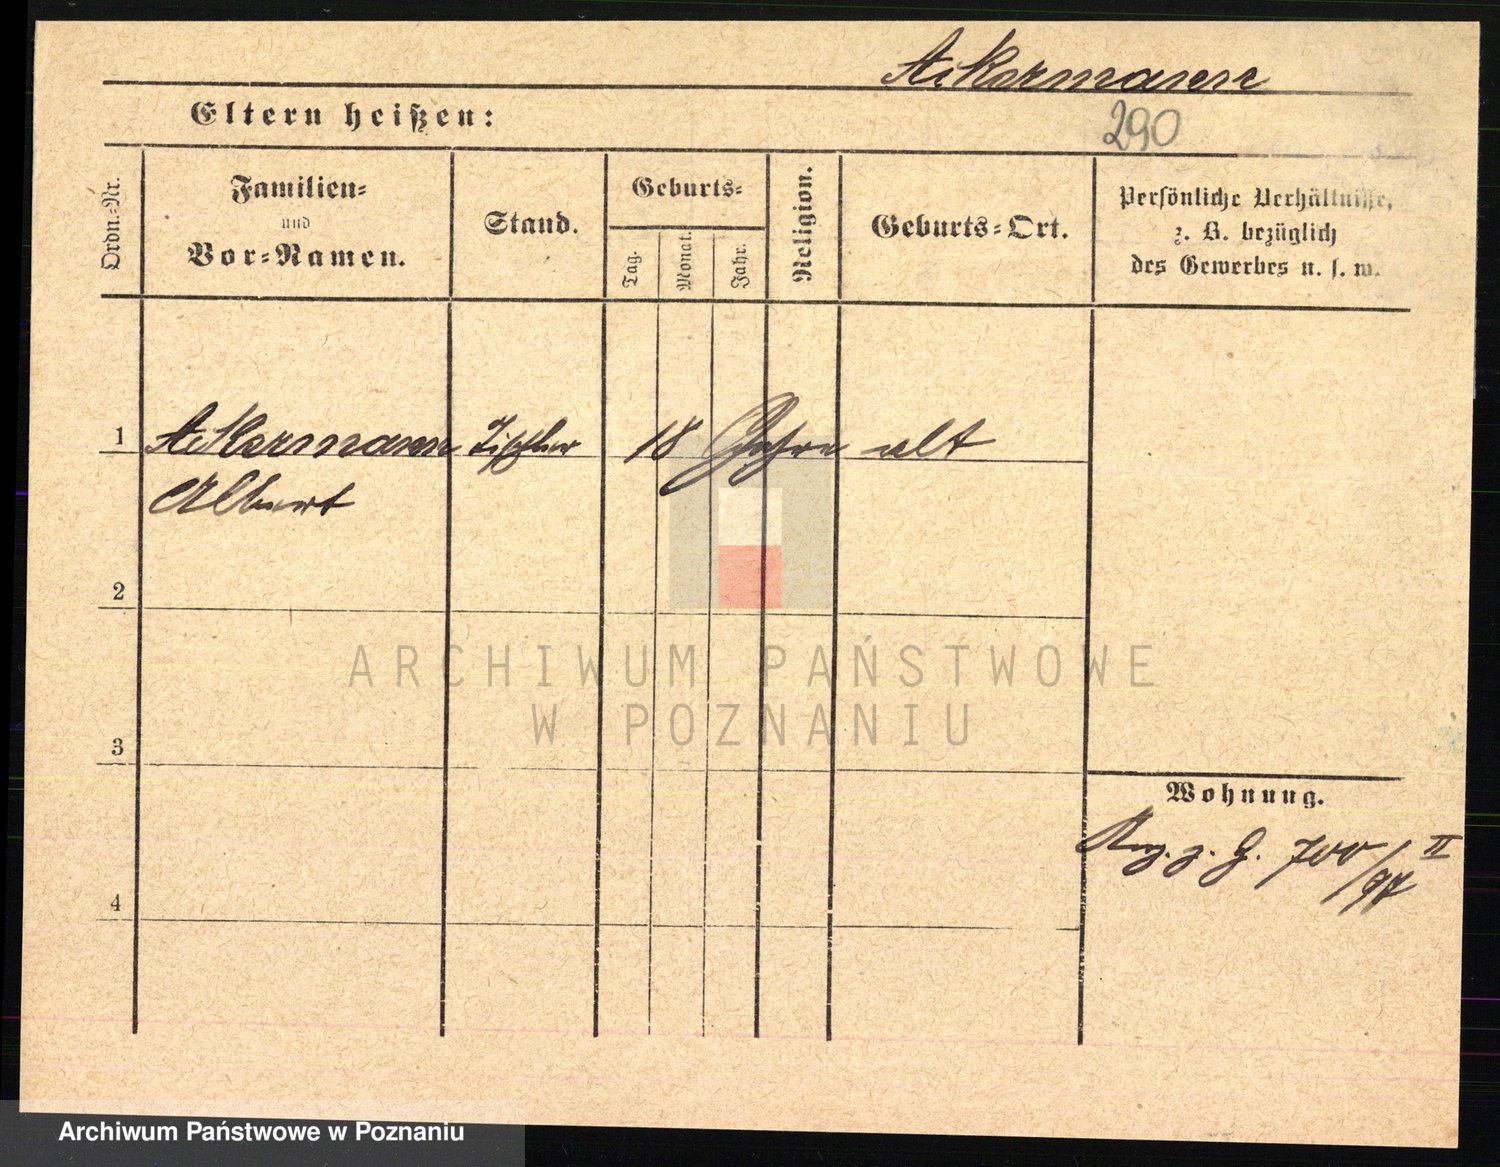 Ackermann
Eltern heißen:
290
Ordn.=Nr.
Familien=
und
Vor=Namen.
Stand.
Geburts=
Tag.
Monat.
Jahr.
Religion.
Geburts=Ort.
Persönliche Verhältnisse,
z. B. bezüglich
des Gewerbes u. s. w.
1 Ackermann Tischler 18 Jahre alt
Albert
2
3
4
Wohnung.
Rug. z. G. 700/97 II
ARCHIWUM PAŃSTWOWE
W POZNANIU
Archiwum Państwowe w Poznaniu